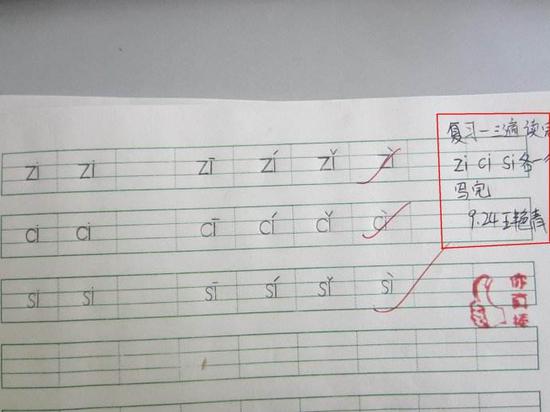 复习一三遍 读完
zi ci si 各一行
写完
9.24 王艳青
zi zi zī zí zǐ zì
ci ci cī cí cǐ cì
si si sī sí sǐ sì
你真棒